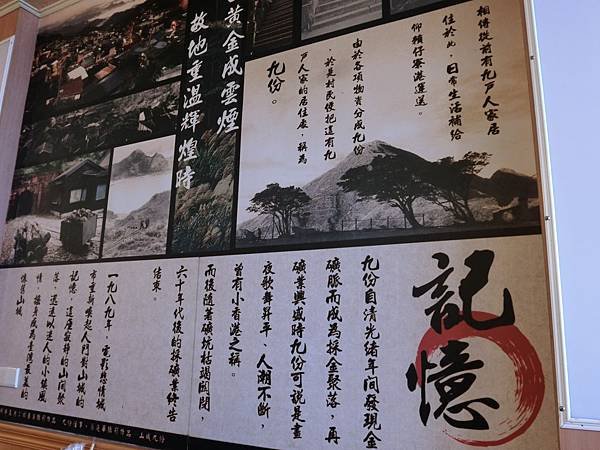 黃金成雲煙
故地重溫輝煌時
相傳從前有九戶人家居
住於此，日常生活補給
仰賴仔寮港運送。
由於各項物資分成九份
，於是村民便把這有九
戶人家的居住處，稱為
九份。
記憶
九份自清光緒年間發現金
礦脈而成為採金聚落，再
礦業興盛時九份可說是晝
夜歌舞昇平、人潮不斷，
曾有小香港之稱。
而後隨著礦坑枯竭關閉，
六十年代後的採礦業終告
結束。
一九八九年，電影悲情城
市重新喚起人們對山城的
記憶，這座寂靜的山間聚
落，逐漸以迷人的小鎮風
情，搖身成為
懷舊山城